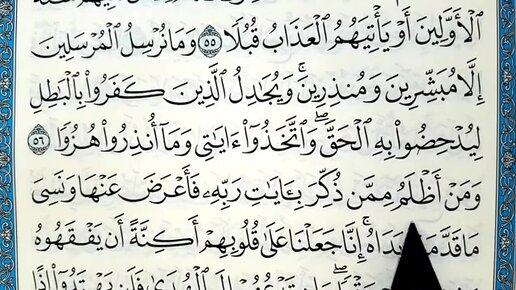 ٱلْأَوَّلِينَ أَوْ يَأْتِيَهُمُ ٱلْعَذَابُ قُبُلًا ٥٥ وَمَا نُرْسِلُ ٱلْمُرْسَلِينَ
إِلَّا مُبَشِّرِينَ وَمُنذِرِينَۚ وَيُجَٰدِلُ ٱلَّذِينَ كَفَرُوا۟ بِٱلْبَٰطِلِ
لِيُدْحِضُوا۟ بِهِ ٱلْحَقَّۖ وَٱتَّخَذُوٓا۟ ءَايَٰتِى وَمَآ أُنذِرُوا۟ هُزُوًا ٥٦
وَمَنْ أَظْلَمُ مِمَّن ذُكِّرَ بِـَٔايَٰتِ رَبِّهِۦ فَأَعْرَضَ عَنْهَا وَنَسِىَ
مَا قَدَّمَ يَدَاهُۚ إِنَّا جَعَلْنَا عَلَىٰ قُلُوبِهِمْ أَكِنَّةً أَن يَفْقَهُوهُ